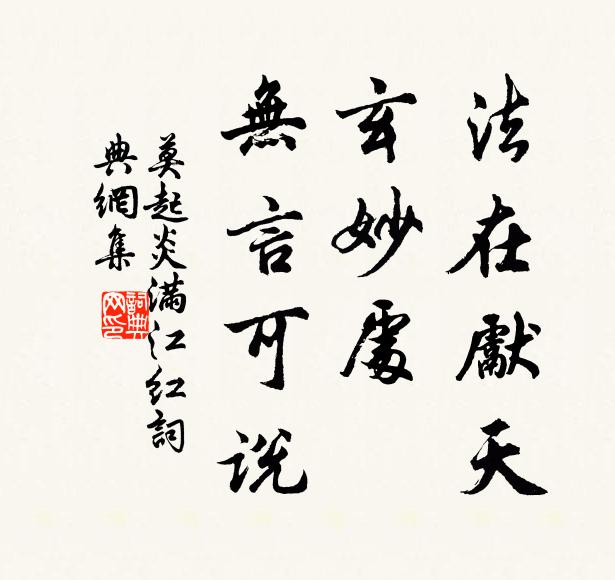 法在獻天
玄妙處
無言可说
莫起炎滿江红詞
典網集
詞典网印